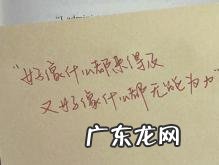 "好像什么都来得及
又好像什么都无能为力"
广东龙网